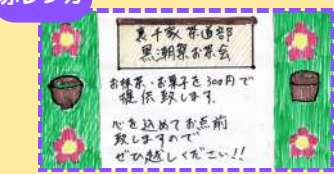 裏千家茶道部
黒潮祭お茶会
お抹茶・お菓子を300円で
提供致します。
心を込めてお点前
致しますので
ぜひ越しください!!